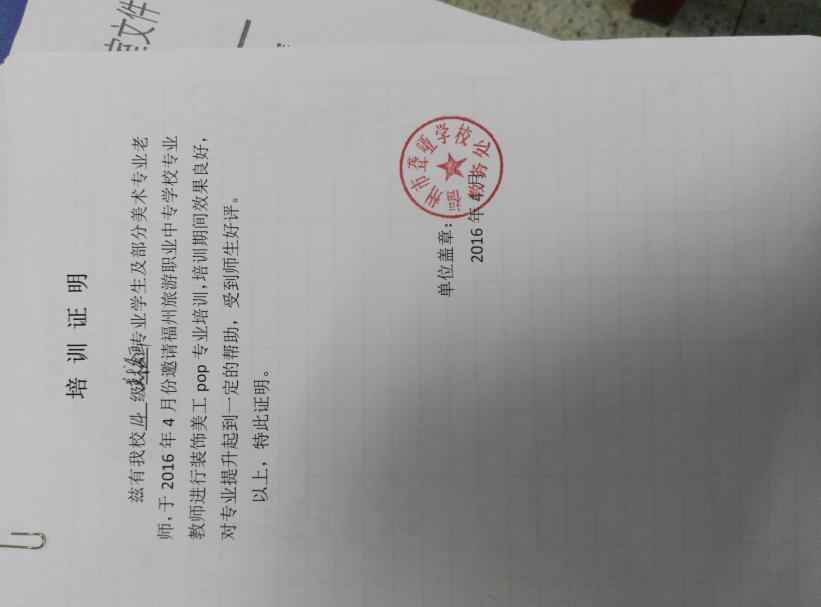 定文件
培训证明
兹有我校14级专业学生及部分美术专业老
师,于2016年4月份邀请福州旅游职业中专学校专业
教师进行装饰美工pop专业培训,培训期间效果良好,
对专业提升起到一定的帮助，受到师生好评。
以上，特此证明。
福州市聋哑学校
教务处
单位盖章：
2016年4月